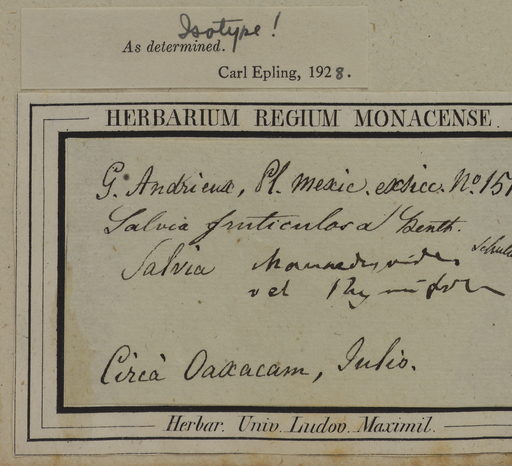 Isotype!
As determined.
Carl Epling, 1928.
HERBARIUM REGIUM MONACENSE.
G. Andrieux, Pl. mexic. exsicc. No. 151
Salvia fruticulosa Benth.
Salvia
vel
Circà Oaxacam, Julio.
Herbar. Univ. Ludov. Maximil.